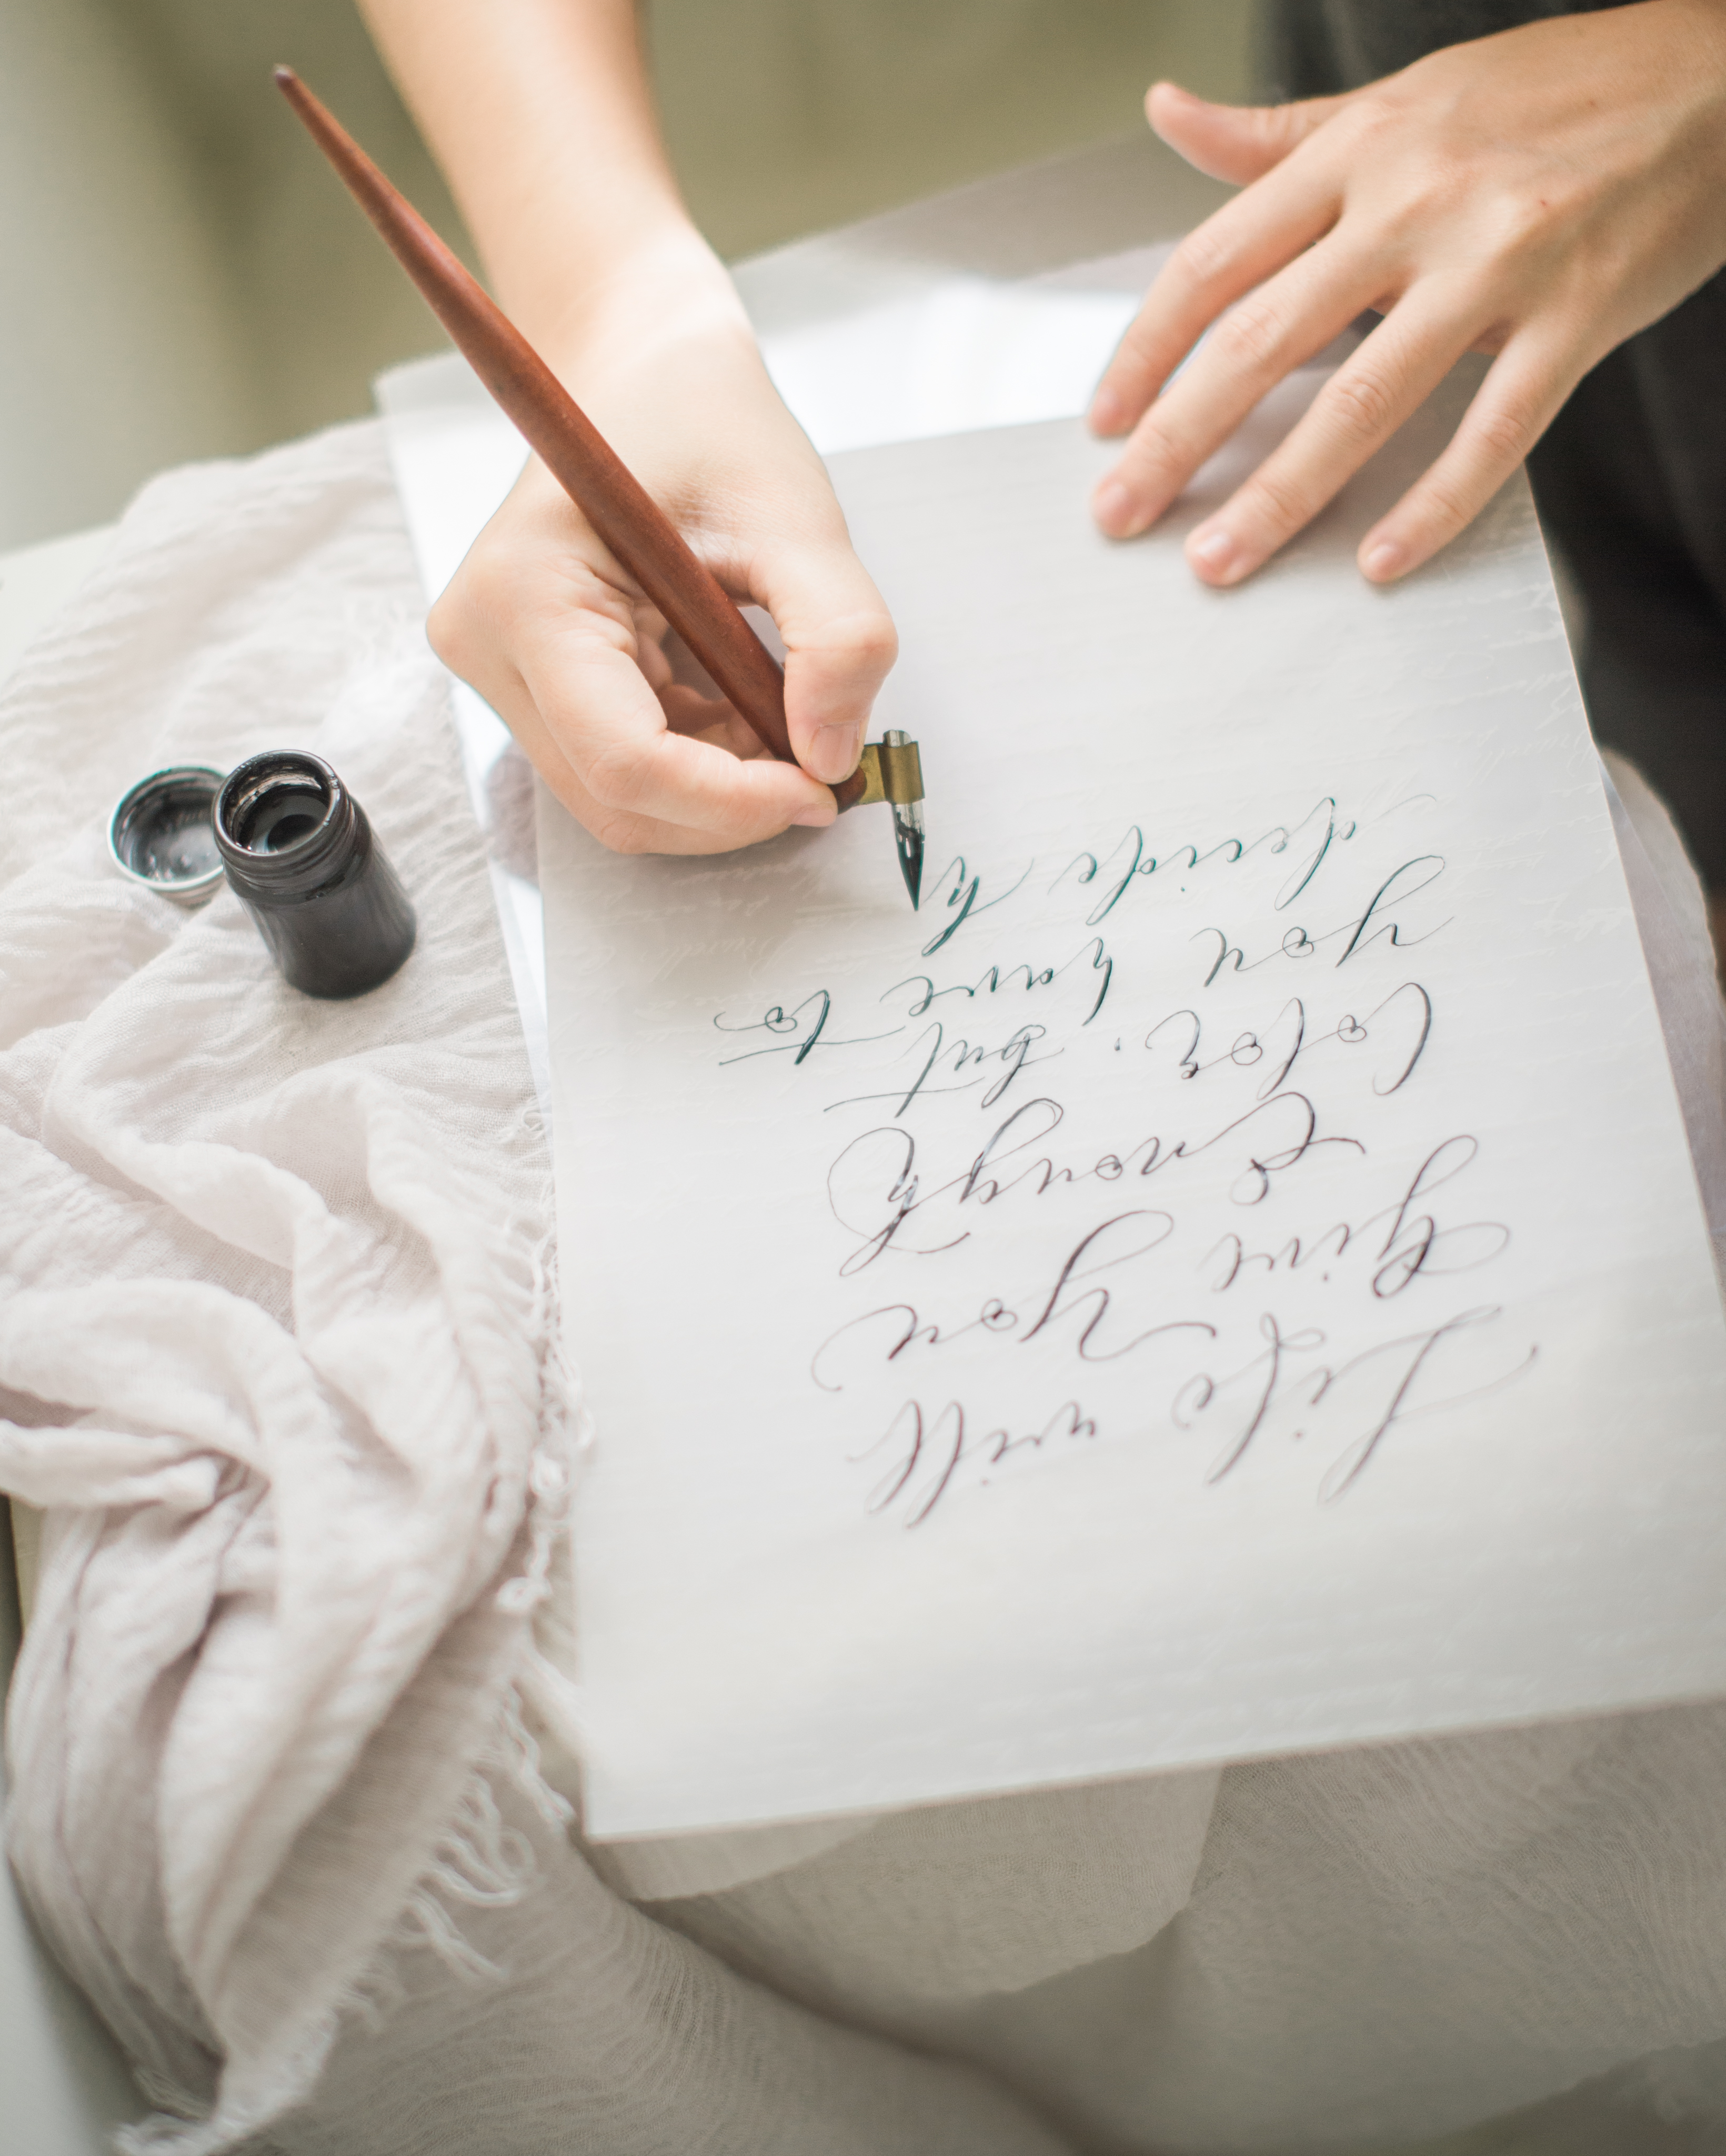 Life will
Give You
Enough
Color, but
you have to
decide h